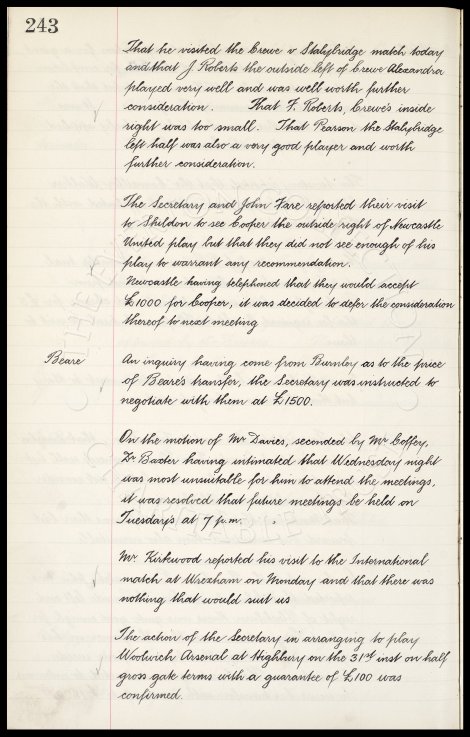 243
That he visited the Crewe v Stalybridge match today
and that J. Roberts the outside left of Crewe Alexandra
played very well and was well worth further
consideration. That F. Roberts, Crewe's inside
right was too small. That Pearson the Stalybridge
left half was also a very good player and worth
further consideration.
The Secretary and John Fare reported their visit
to Shildon to see Cooper the outside right of Newcastle
United play but that they did not see enough of his
play to warrant any recommendation.
Newcastle having telephoned that they would accept
£1000 for Cooper, it was decided to defer the consideration
thereof to next meeting
Beare An inquiry having come from Burnley as to the price
of Beare's transfer, the Secretary was instructed to
negotiate with them at £1500.
On the motion of Mr Davies, seconded by Mr Coffey,
Dr Baxter having intimated that Wednesday night
was most unsuitable for him to attend the meetings,
it was resolved that future meetings be held on
Tuesday's at 7 p.m.
Mr. Kirkwood reported his visit to the International
match at Wrexham on Monday and that there was
nothing that would suit us
The action of the Secretary in arranging to play
Woolwich Arsenal at Highbury on the 31st inst on half
gross gate terms with a guarantee of £100 was
confirmed.